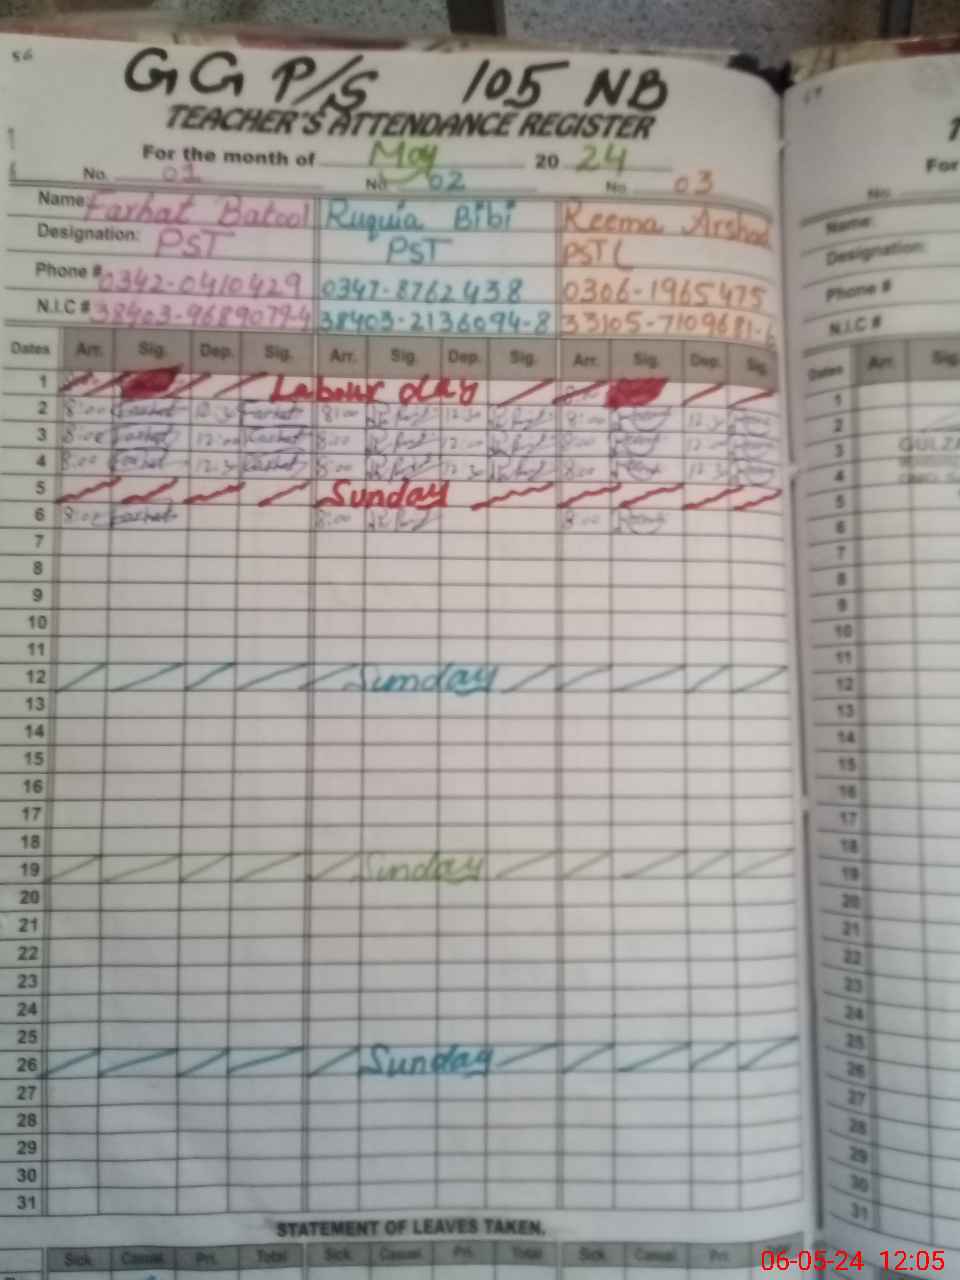 56
GG P/S 105 NB
TEACHER'S ATTENDANCE REGISTER
For the month of May 2024
No. 01 No. 02 No. 03
Name: Farhat Batool Ruquia Bibi Reema Arshad
Designation: PST PST PST
Phone # 0342-0410429 0347-8762438 0306-1965475
N.I.C # 38403-9689079-4 38403-2136094-8 33105-7109681-
Dates Arr. Sig. Dep. Sig. Arr. Sig. Dep. Sig. Arr. Sig. Dep. Sig.
1 Labour day
2 8:00 Farhat 12:30 Farhat 8:00 12:30 8:00 12:30
3 8:00 Farhat 12:00 Farhat 8:00 12:00 8:00 12:00
4 8:00 Farhat 12:30 Farhat 8:00 12:30 8:00 12:30
5 Sunday
6 8:00 Farhat 8:00 8:00
7
8
9
10
11
12 Sunday
13
14
15
16
17
18
19 Sunday
20
21
22
23
24
25
26 Sunday
27
28
29
30
31
STATEMENT OF LEAVES TAKEN.
Sick Casual Pri. Total Sick Casual Pri. Total Sick Casual Pri.
For
No.
Name:
Designation:
Phone #
N.I.C #
Dates Arr. Sig.
1
2
3
4
5
6
7
8
9
10
11
12
13
14
15
16
17
18
19
20
21
22
23
24
25
26
27
28
29
30
31
06-05-24 12:05